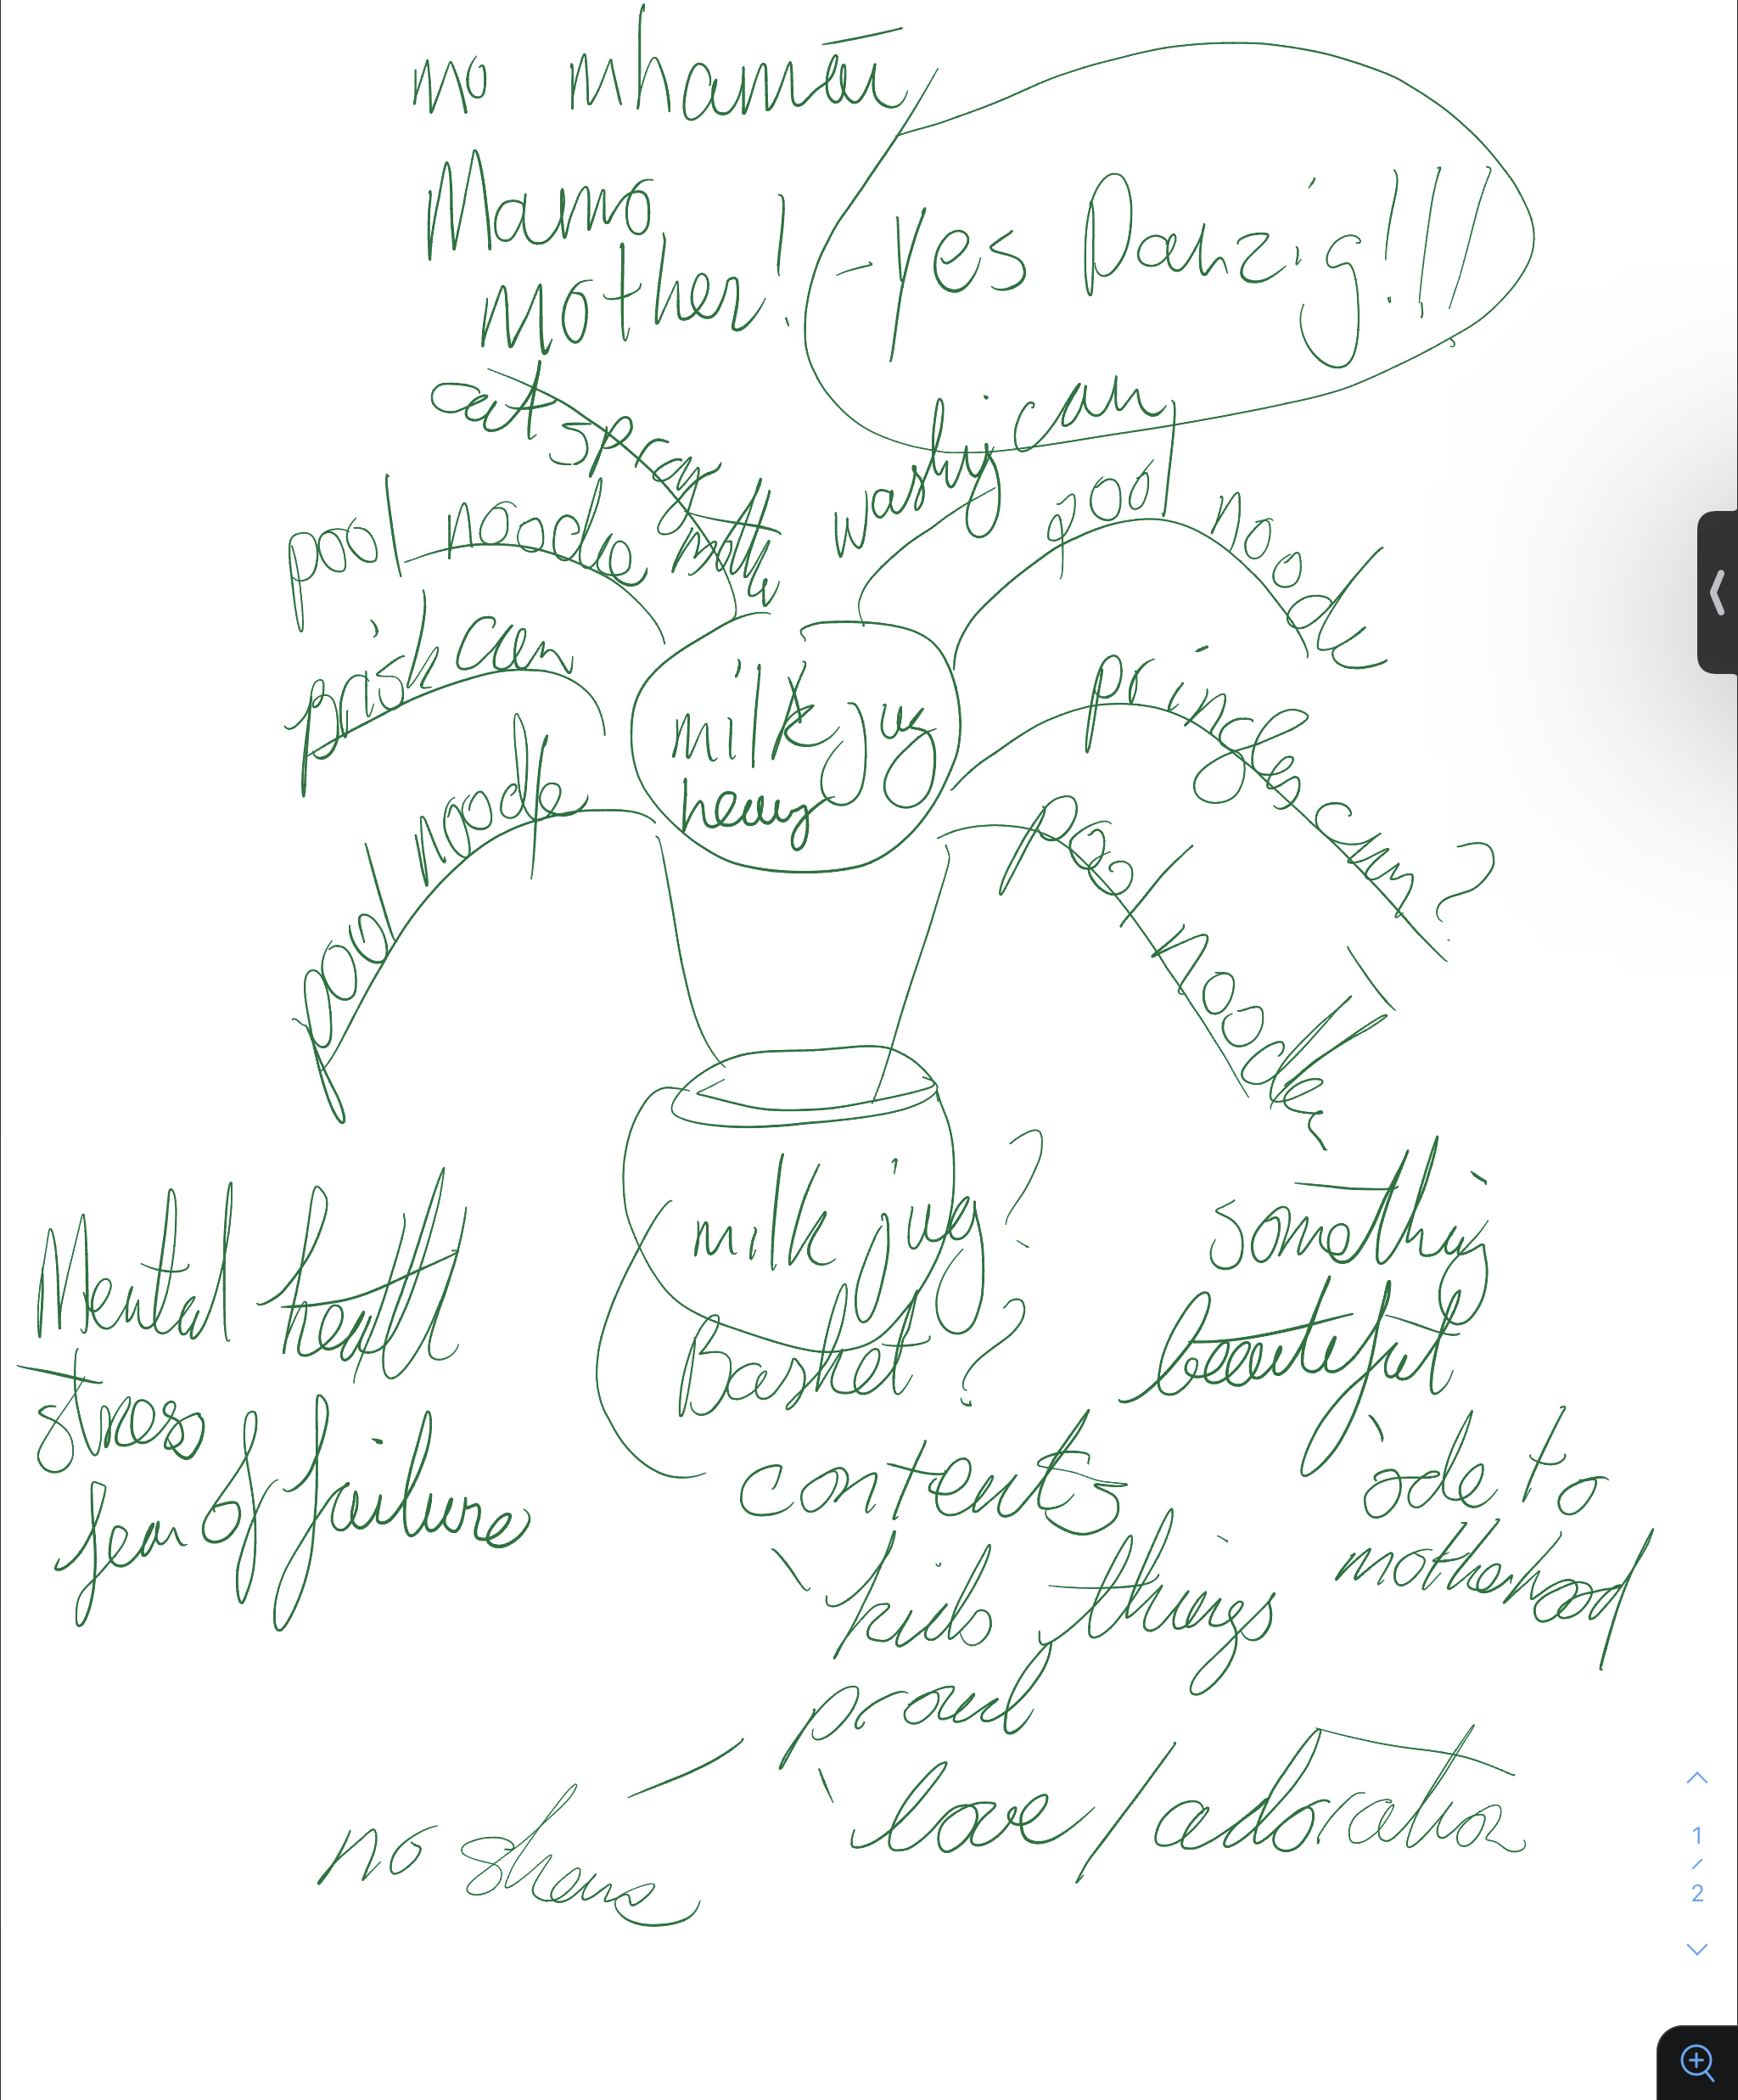 no mhamaí
Mamo
Mother!
- Yes Danzig!!!!
cat spray bottle
washy can
pool noode
pool noode
can
milk jug
heavy
pringles can?
pool noode
pool noodle
milk jug?
Basket?
Mental health
stress
fear of failure
something
beautiful
ode to
motherhood
contents
kids things
proud
love/adoration
no
1
/
2